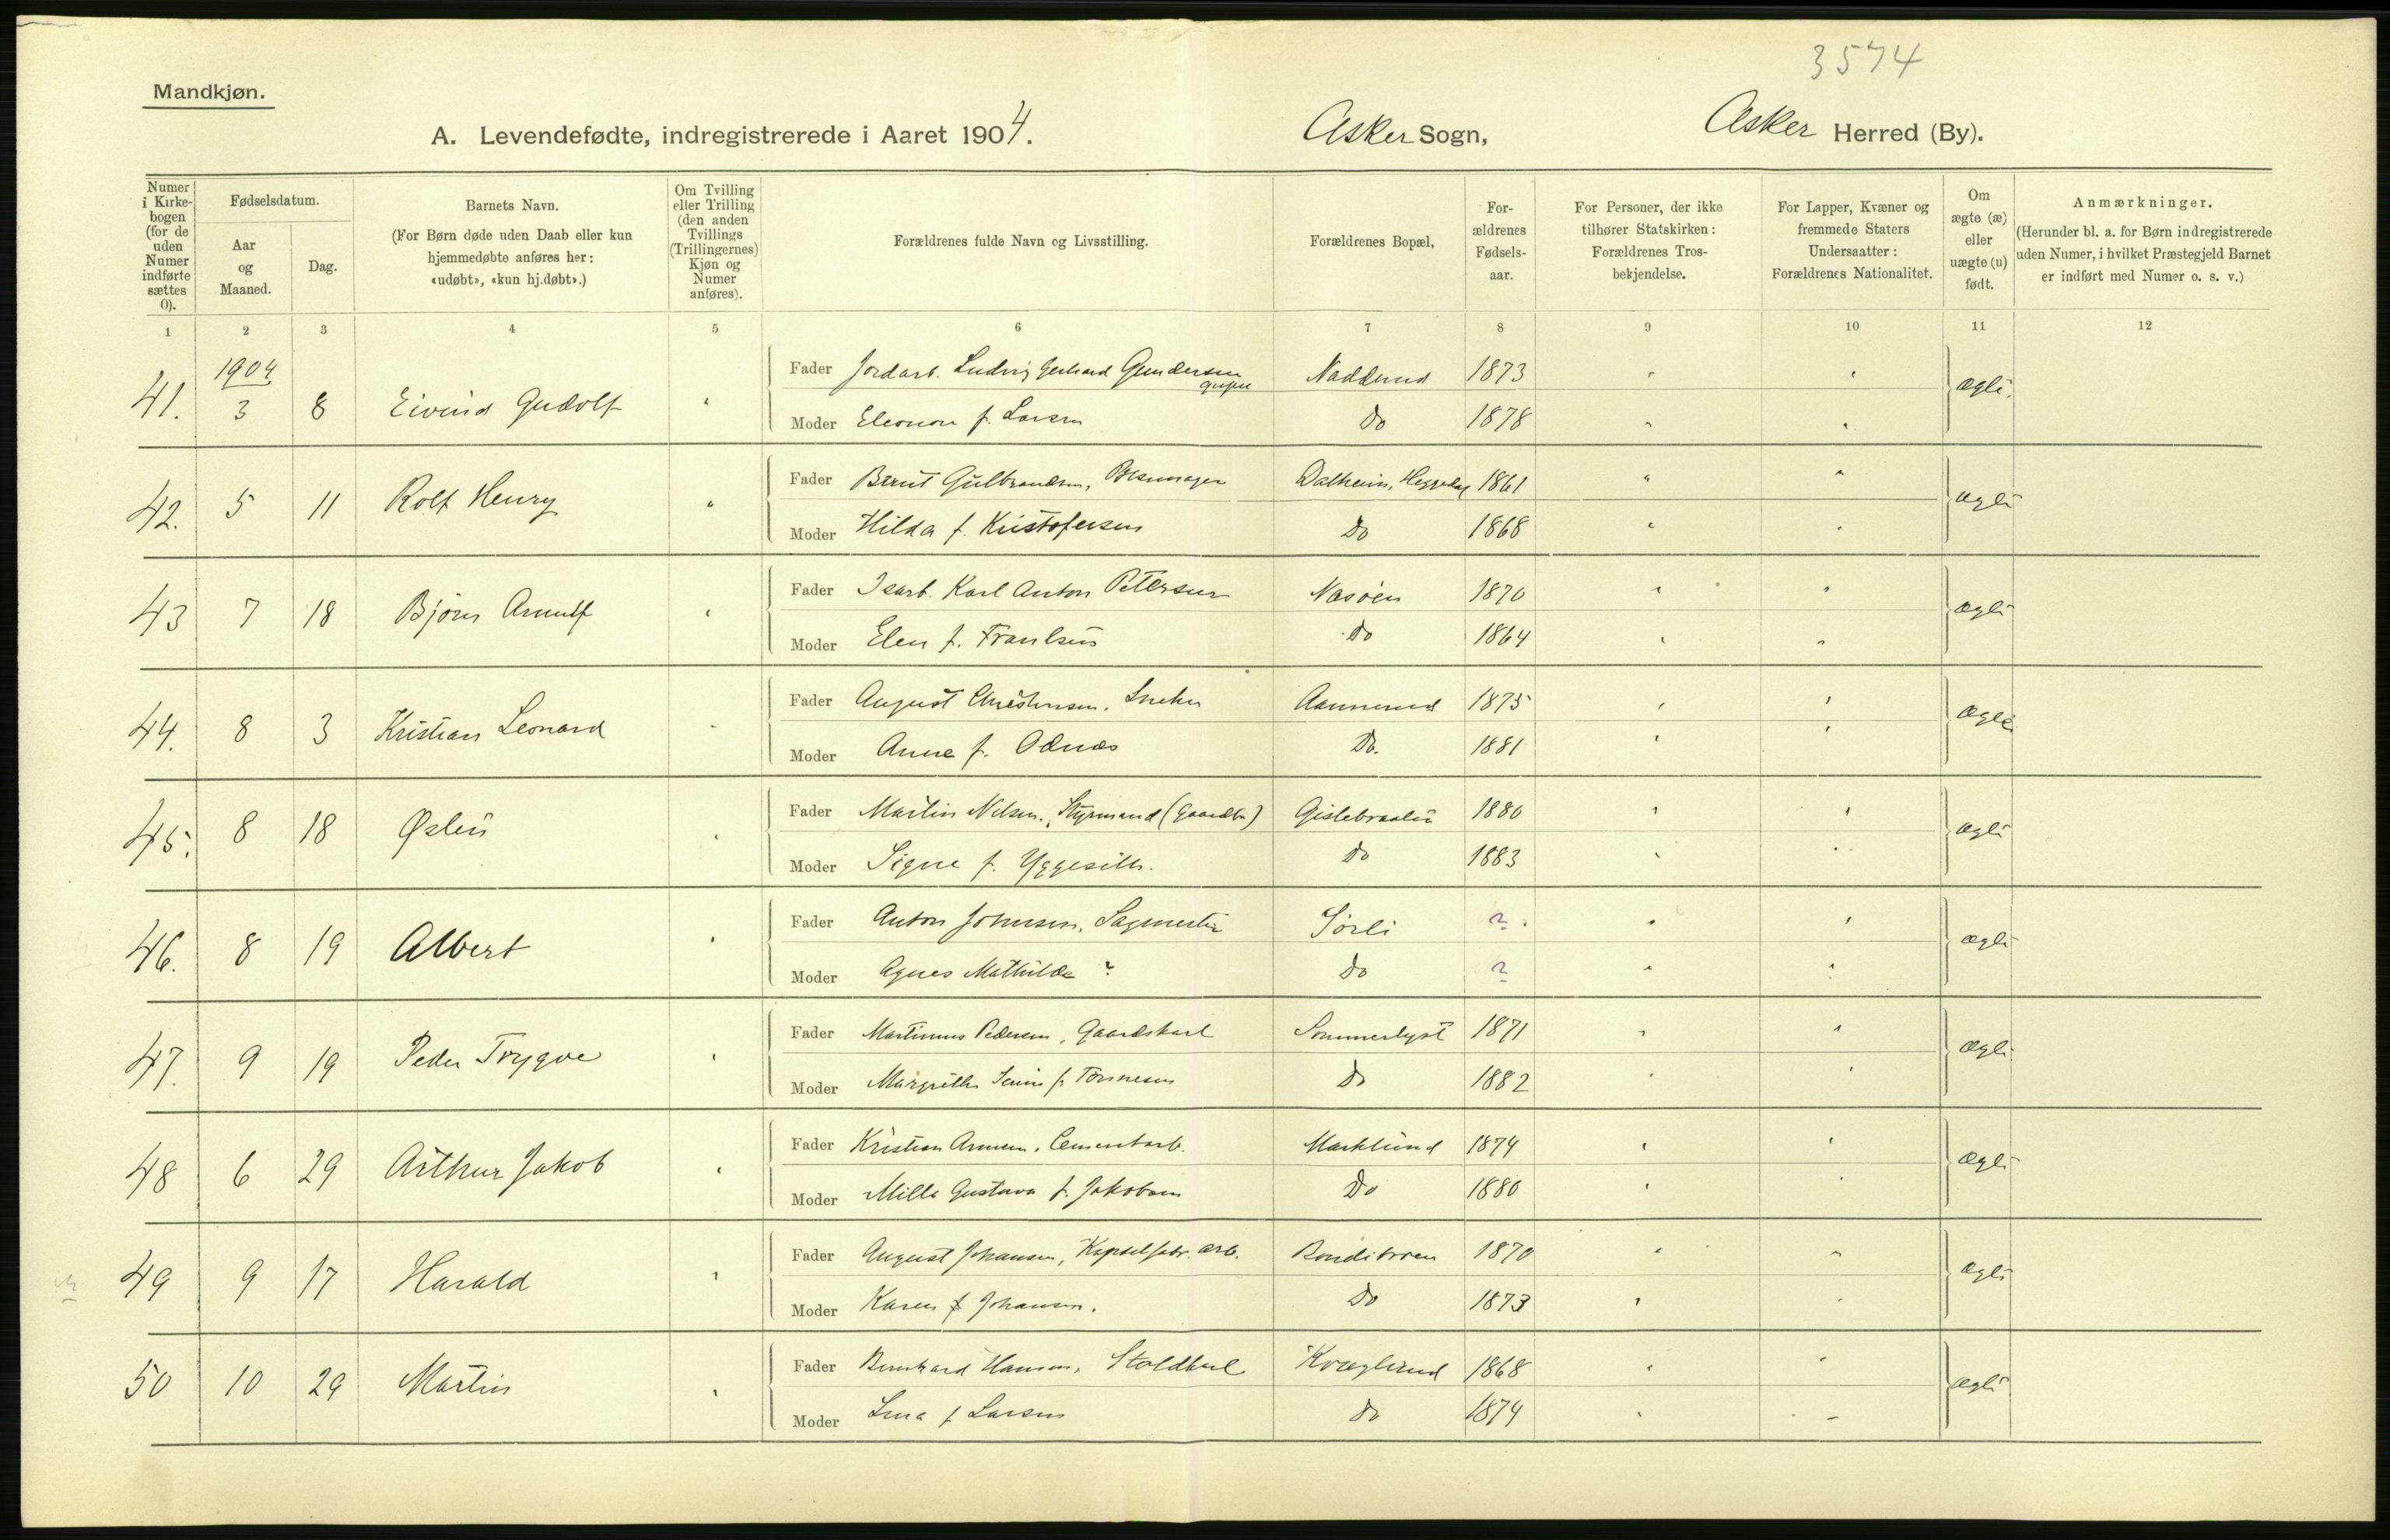 3574
Mandkjøn.
A. Levendefødte, indregistrerede i Aaret 1904. Asker Sogn, Asker Herred (By).
Numer i Kirkebogen (for de uden Numer indførte sættes 0).
Fødselsdatum.
Aar og Maaned.
Dag.
Barnets Navn.
(For Børn døde uden Daab eller kun hjemmedøbte anføres her: «udøbt», «kun hj.døbt».)
Om Tvilling eller Trilling (den anden Tvillings (Trillingernes) Kjøn og Numer anføres).
Forældrenes fulde Navn og Livsstilling.
Forældrenes Bopæl,
Forældrenes Fødselsaar.
For Personer, der ikke tilhører Statskirken: Forældrenes Trosbekjendelse.
For Lapper, Kvæner og fremmede Staters Undersaatter: Forældrenes Nationalitet.
Om ægte (æ) eller uægte (u) født.
Anmærkninger.
(Herunder bl. a. for Børn indregistrerede uden Numer, i hvilket Præstegjeld Barnet er indført med Numer o. s. v.)
1 2 3 4 5 6 7 8 9 10 11 12
1904
41. 3 8 Eivind Gudolf " Fader Jordarb. Ludvig Gerhard Gundersen Nadderud 1873 " "
Moder Eleonore f. Larsen Do 1878 " "
42. 5 11 Rolf Henry " Fader Bernt Gulbrandsen, Dalheim, Heggedal 1861 " "
Moder Hilda f. Kristofersen Do 1868 " "
43 7 18 Bjørn Arnulf " Fader Isarb. Karl Anton Petersen Næsøen 1870 " "
Moder Elen f. Do 1864 " "
44. 8 3 Kristian Leonard " Fader August Christensen, Sneker 1875 " "
Moder Anne f. Odnæs Do. 1881 " "
45. 8 18 Østen " Fader Martin Nilsen, Styrmand (Gaardbr) 1880 " "
Moder Signe f. Do 1883 " "
46. 8 19 Albert " Fader Anton Johnsen, Sagmester Sørli ? " "
Moder Agnes Mathilde ? Do ? " "
47. 9 19 Peder Trygve " Fader Martinus Pedersen, Gaardskarl Sommerlyst 1871 " "
Moder f. Tønnesen Do 1882 " "
48 6 29 Arthur Jakob " Fader Kristian Cementarb. 1874 " "
Moder Milla Gustava f. Jakobsen Do 1880 " "
49 9 17 Harald " Fader August Johansen, Kapselfabr. arb. 1870 " "
Moder Karen f Johansen. Do 1873 " "
50 10 29 Martin " Fader Bernhard Hansen, Staldkarl 1868 " "
Moder f Larsen Do 1874 " "